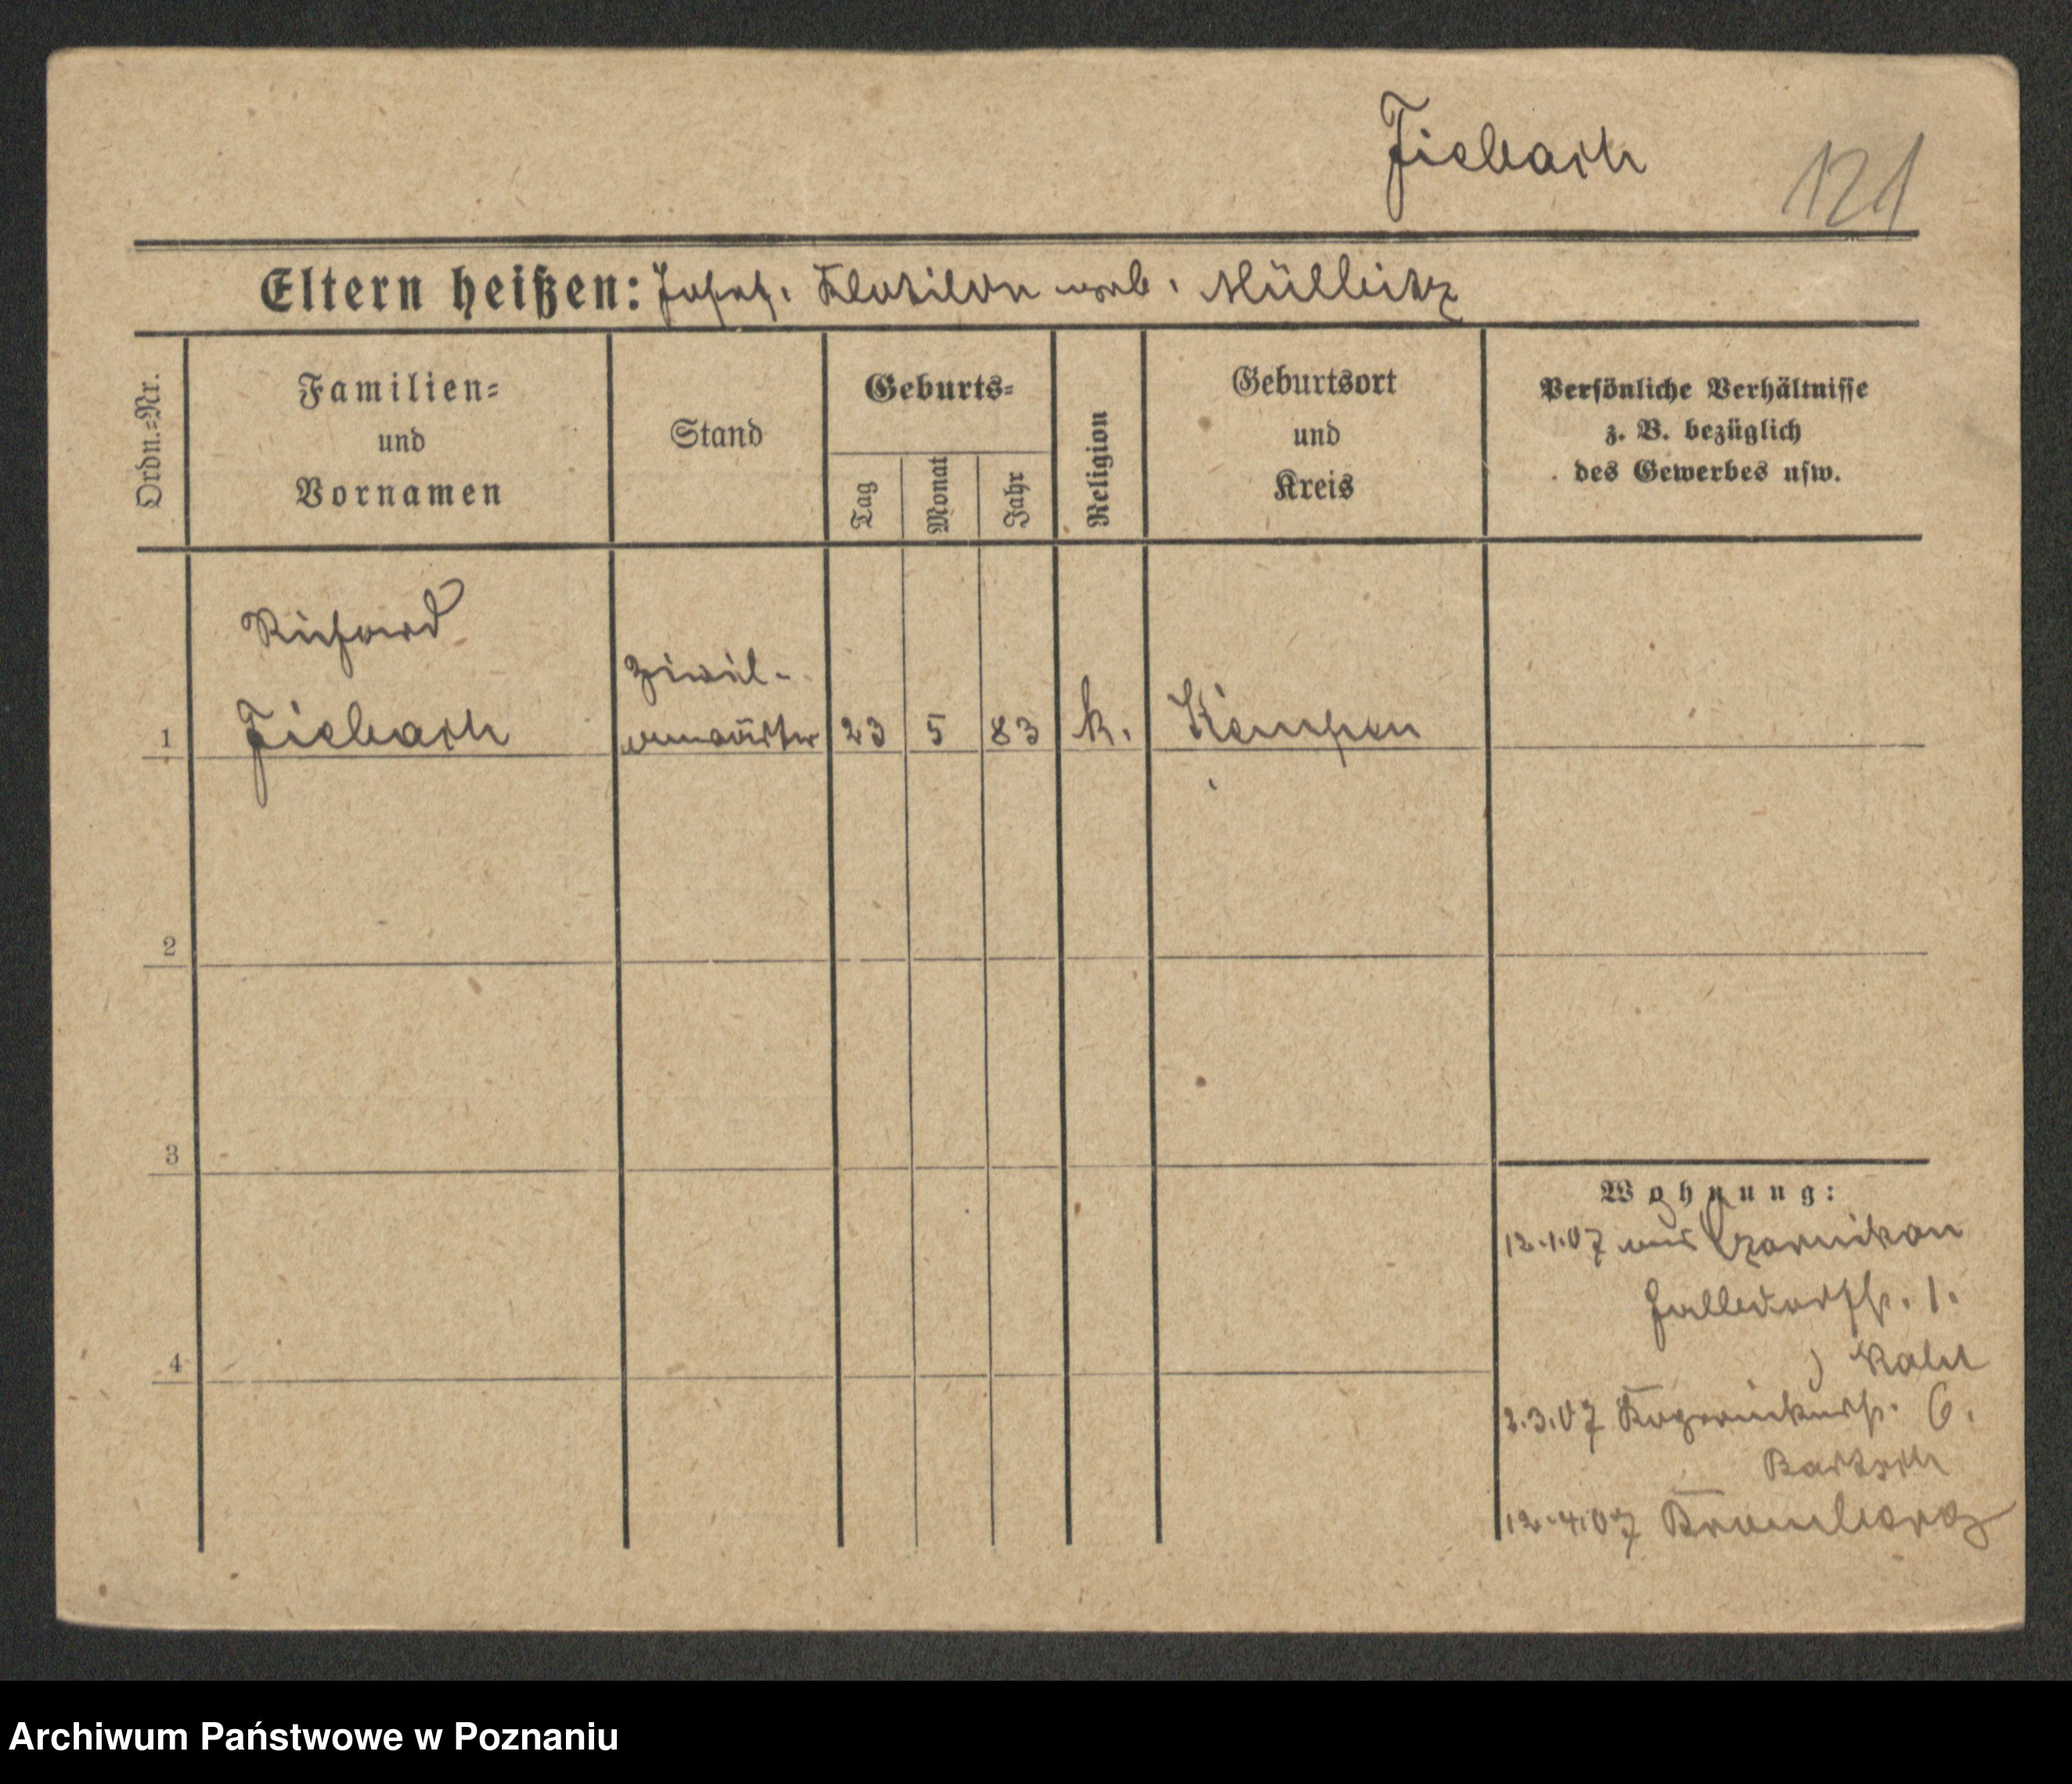 Fiebach
121
Eltern heißen: Josef, Klotilde geb. Mülleitz
Ordn.=Nr.
Familien=
und
Vornamen
Stand
Geburts=
Tag
Monat
Jahr
Religion
Geburtsort
und
Kreis
Persönliche Verhältnisse
z. B. bezüglich
des Gewerbes usw.
Richard
Zivil-
1 Fiebach anwärter 23 5 83 k. Kempen
2
3
4
Wohnung:
12.1.07 aus Czarnikau
Halldorfstr. 1.
2.3.07 6.
Bartsch
12.4.07 Bromberg
Archiwum Państwowe w Poznaniu